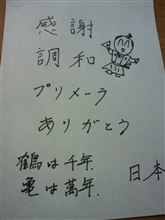 感謝
調和
プリメーラ
ありがとう
鶴は千年、
亀は萬年、
日本